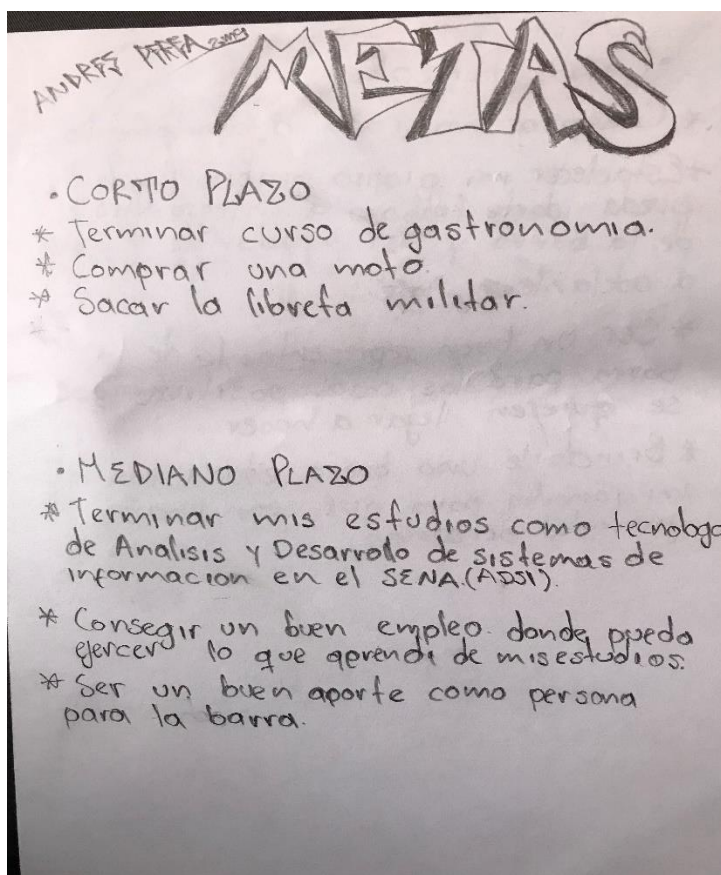 ANDRES PEREA
METAS
• CORTO PLAZO
* Terminar curso de gastronomia.
* Comprar una moto.
* Sacar la libreta militar.
• MEDIANO PLAZO
* Terminar mis estudios como tecnologo
de Analisis y Desarrolo de sistemas de
informacion en el SENA.(ADSI).
* Consegir un buen empleo donde pueda
ejercer lo que aprendi de mis estudios.
* Ser un buen aporte como persona
para la barra.